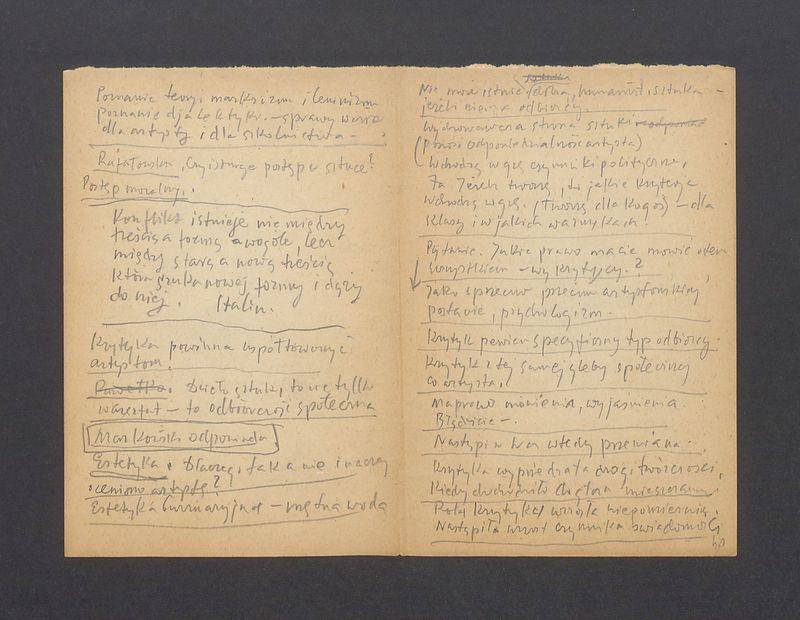 Poznanie teorji marksizmu i leninizmu
Poznanie djalektyki. – sprawy ważne
dla artysty i dla szkolnictwa –
Rafałowski, Czy istnieje postęp w sztuce?
Postęp moralny.
Konflikt istnieje nie między
treścią a formą wogóle, lecz
między starą a nową treścią
która szuka nowej formy i dąży
do niej. Stalin.
Krytyka powinna współtworzyć z
artystom.
Pawełko. Dzieło sztuki, to nie tylko
warsztat – to odbiorczość społeczna
Markowski odpowiada
Estetyka. Dlaczego tak a nie inaczej
oceniono artystę?
Estetyka burżuazyjna – mętna woda
Nie może istnieć sztuka –
jeżeli niema odbiorcy.
Wychowawcza strona sztuki
(ponosi odpowiedzialność artysta)
Wchodzą w grę czynniki polityczne,
Ja jeżeli tworzę, to jakie kryteria
wchodzą w grę. (Tworzę dla kogoś) – dla
klasy i w jakich warunkach.
Pytanie. Jakie prawo macie mówić o tem
wszystkiem – wy krytycy.?
Jako sprzeciw przeciw artystowskiej
postawie, psychologizm.
Krytyk pewien specyficzny typ odbiorcy.
Krytyk z tej samej gleby społecznej
co artysta.
Ma prawo mówienia, wyjaśnienia.
Błądzicie –.
Nastąpi w was wtedy przemiana.
Krytyka wyprzedzała drogi twórczości,
Kiedy dochodziło do głosu mieszczaństwo
Rola krytyka wzrosła niepomiernie.
Nastąpiła wzrost czynnika świadomości